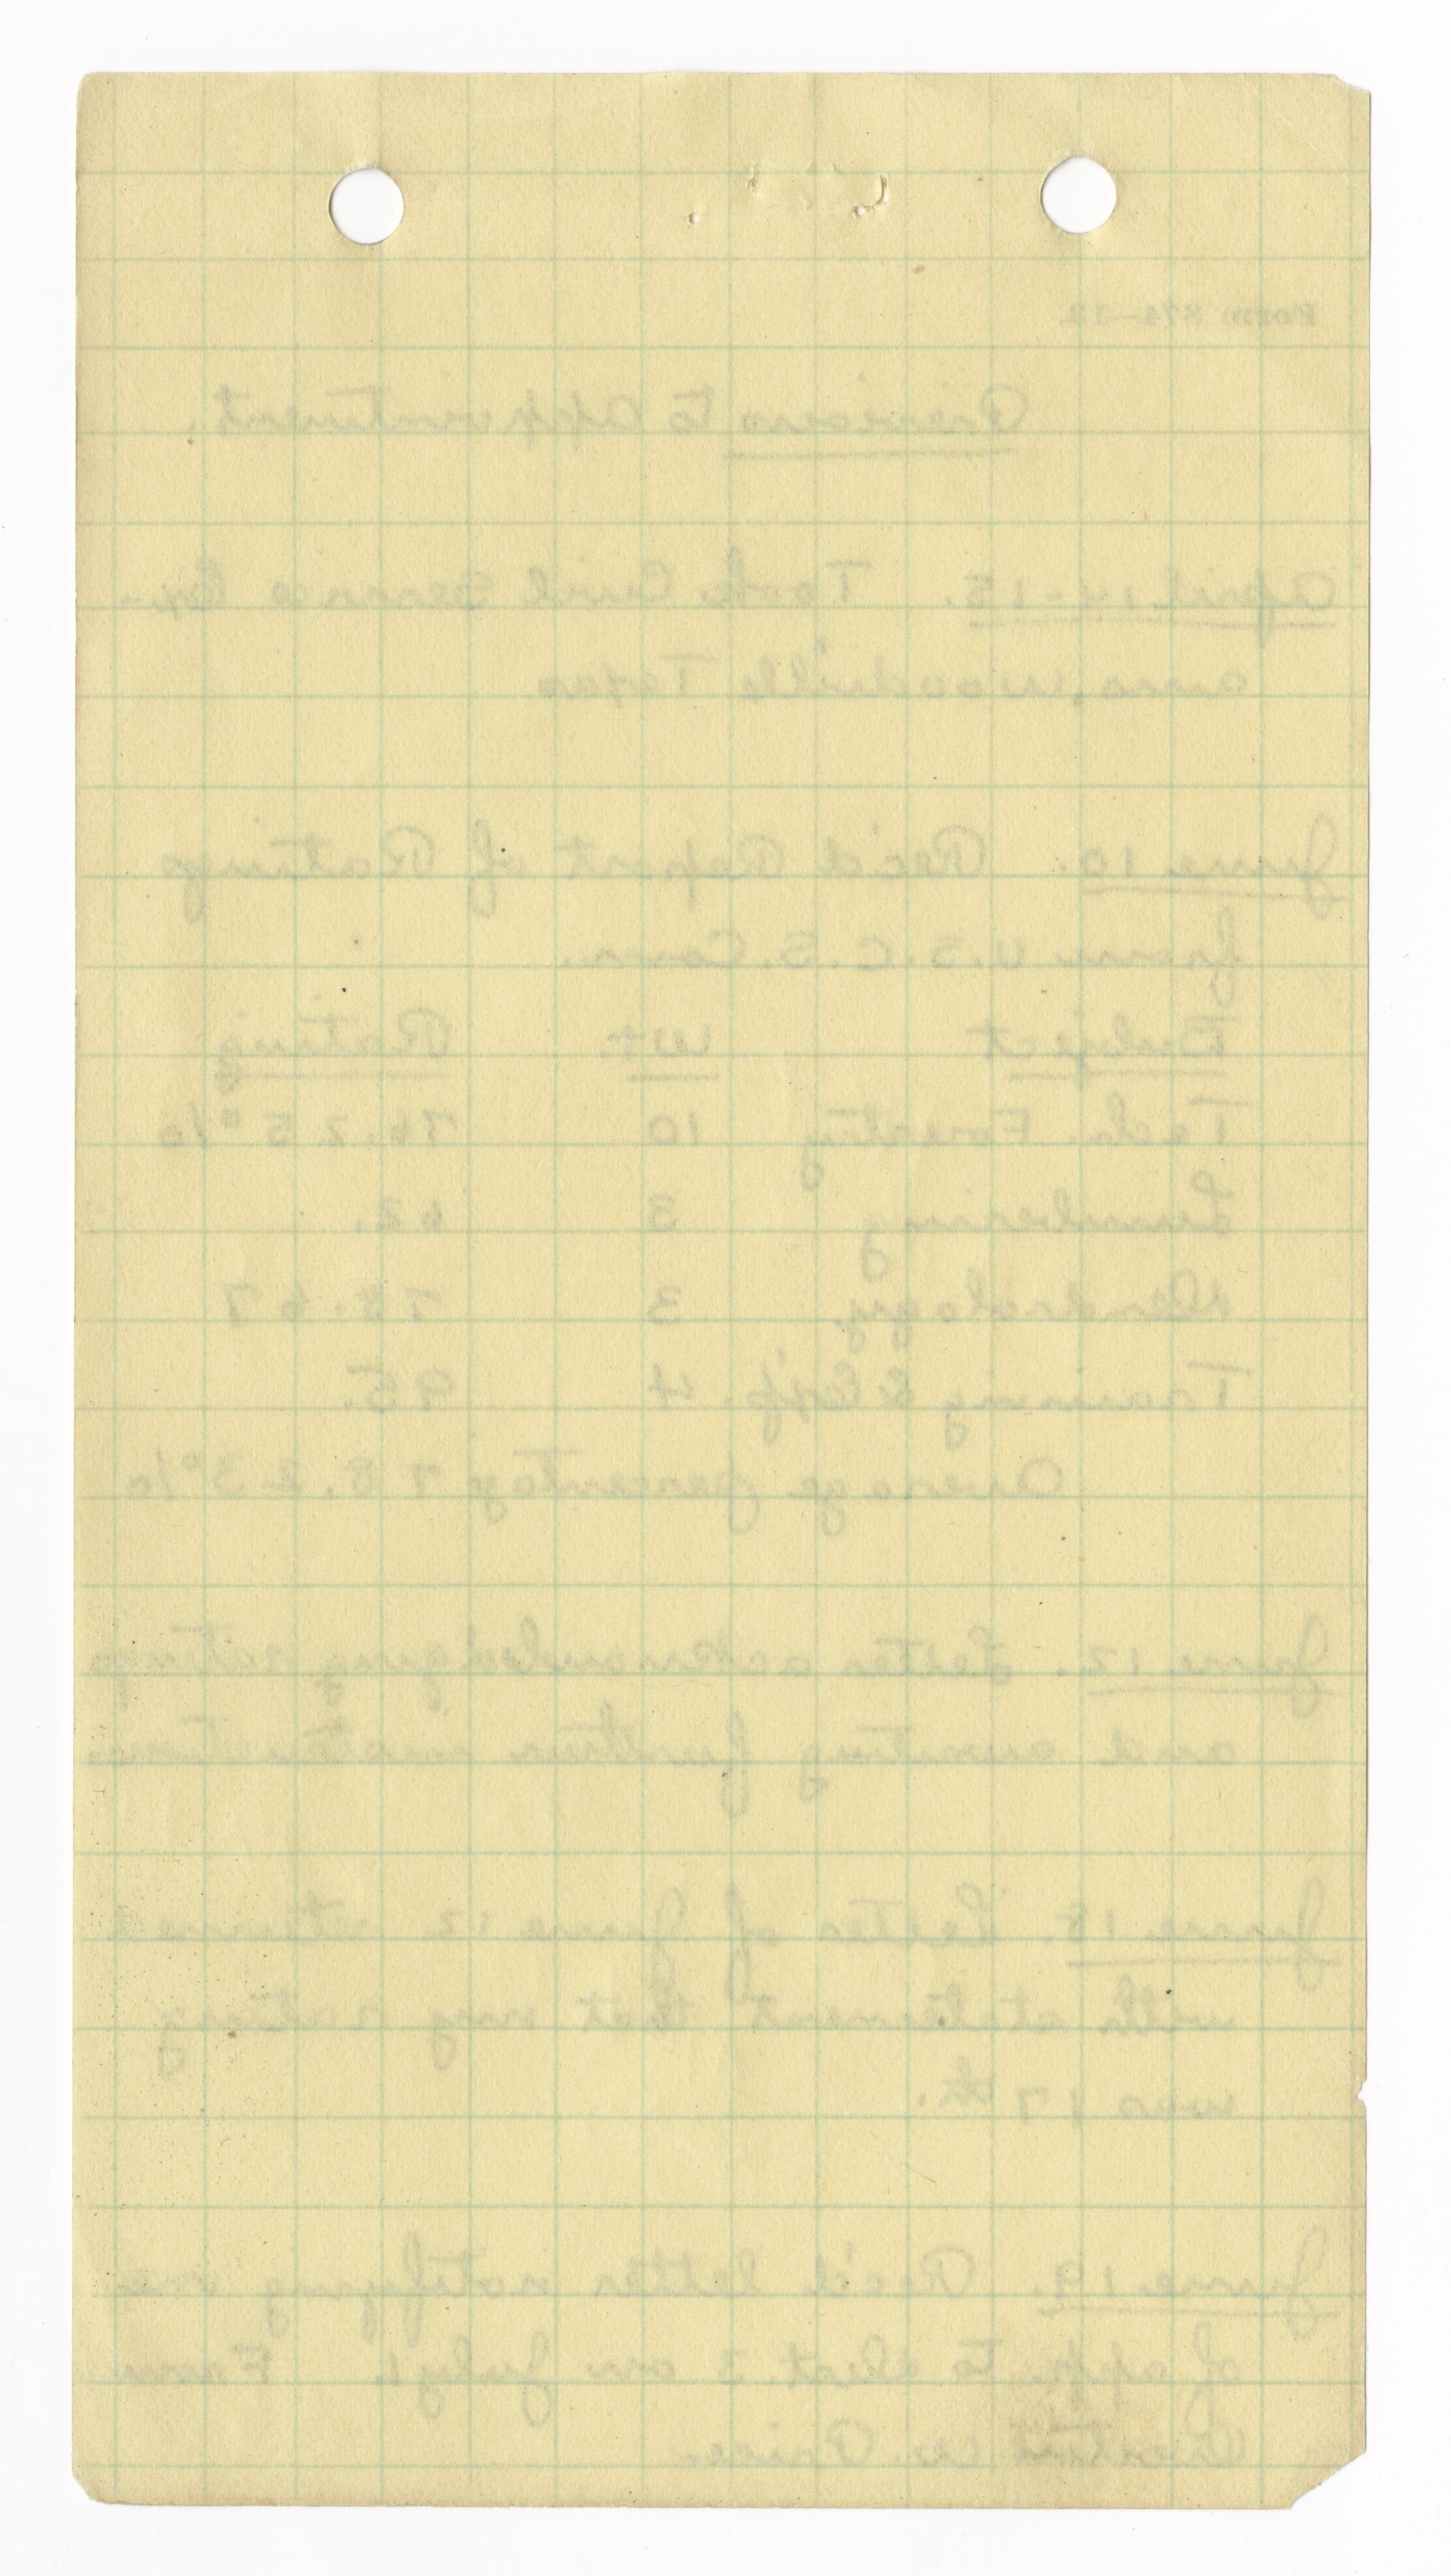 Form 874—12.
Previous to Appointment.
April 14-15. Took Civil Service Ex-
ams, Woodville Texas
June 10. Rec'd Report of Ratings
from U.S.C.S. Com.
Subject Wt. Rating
Tech. Forestry 10 76.25%
Lumbering 3 62.
Dendrology 3 78.67
Training & Exp. 4 95.
Average percentage 78.23%
June 12. Letter acknowledging rating
and awaiting further
June 18. Letter of June 12 returned
with statement that my rating
was 17th.
June 19. Rec'd letter notifying me
of app. to Dist. 3 on July 1. From
W. Price.